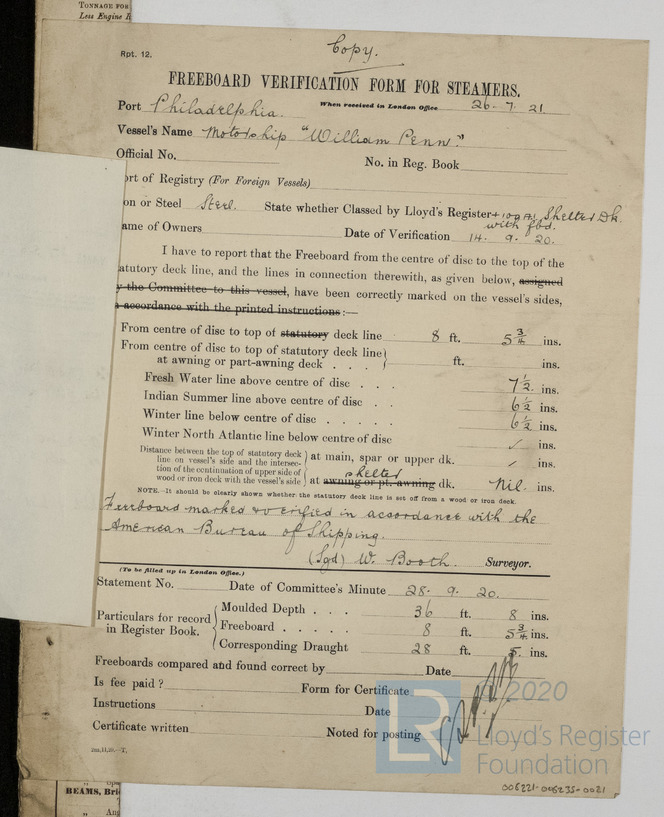 TONNAGE FOR
Less Engine R
Rpt. 12.
Copy.
FREEBOARD VERIFICATION FORM FOR STEAMERS.
Port Philadelphia. When received in London Office 26. 7. 21.
Vessel's Name Motorship "William Penn."
Official No. No. in Reg. Book
ort of Registry (For Foreign Vessels)
on or Steel Steel. State whether Classed by Lloyd's Register +100A1 Shelter Dk.
with fbd.
ame of Owners Date of Verification 14. 9. 20.
I have to report that the Freeboard from the centre of disc to the top of the
atutory deck line, and the lines in connection therewith, as given below, assigned
y the Committee to this vessel, have been correctly marked on the vessel's sides,
accordance with the printed instructions :—
From centre of disc to top of statutory deck line 8 ft. 5 3/4 ins.
From centre of disc to top of statutory deck line
at awning or part-awning deck . . . ft. ins.
Fresh Water line above centre of disc . . . 7 1/2 ins.
Indian Summer line above centre of disc . . 6 1/2 ins.
Winter line below centre of disc . . . . . 6 1/2 ins.
Winter North Atlantic line below centre of disc ✓ ins.
Distance between the top of statutory deck
line on vessel's side and the intersec-
tion of the continuation of upper side of
wood or iron deck with the vessel's side
at main, spar or upper dk. ✓ ins.
shelter
at awning or pt. awning dk. Nil. ins.
NOTE.—It should be clearly shown whether the statutory deck line is set off from a wood or iron deck.
Freeboard marked & verified in accordance with the
American Bureau of Shipping.
(Sgd) W. Booth. Surveyor.
(To be filled up in London Office.)
Statement No. Date of Committee's Minute 28. 9. 20.
Particulars for record
in Register Book.
Moulded Depth . . . 36 ft. 8 ins.
Freeboard . . . . . 8 ft. 5 3/4 ins.
Corresponding Draught 28 ft. 5. ins.
Freeboards compared and found correct by Date
Is fee paid ? Form for Certificate
Instructions Date
Certificate written Noted for posting
2m,11,20.—T.
LR
© 2020
Lloyd's Register
Foundation
BEAMS, Bri
006221-006235-0021